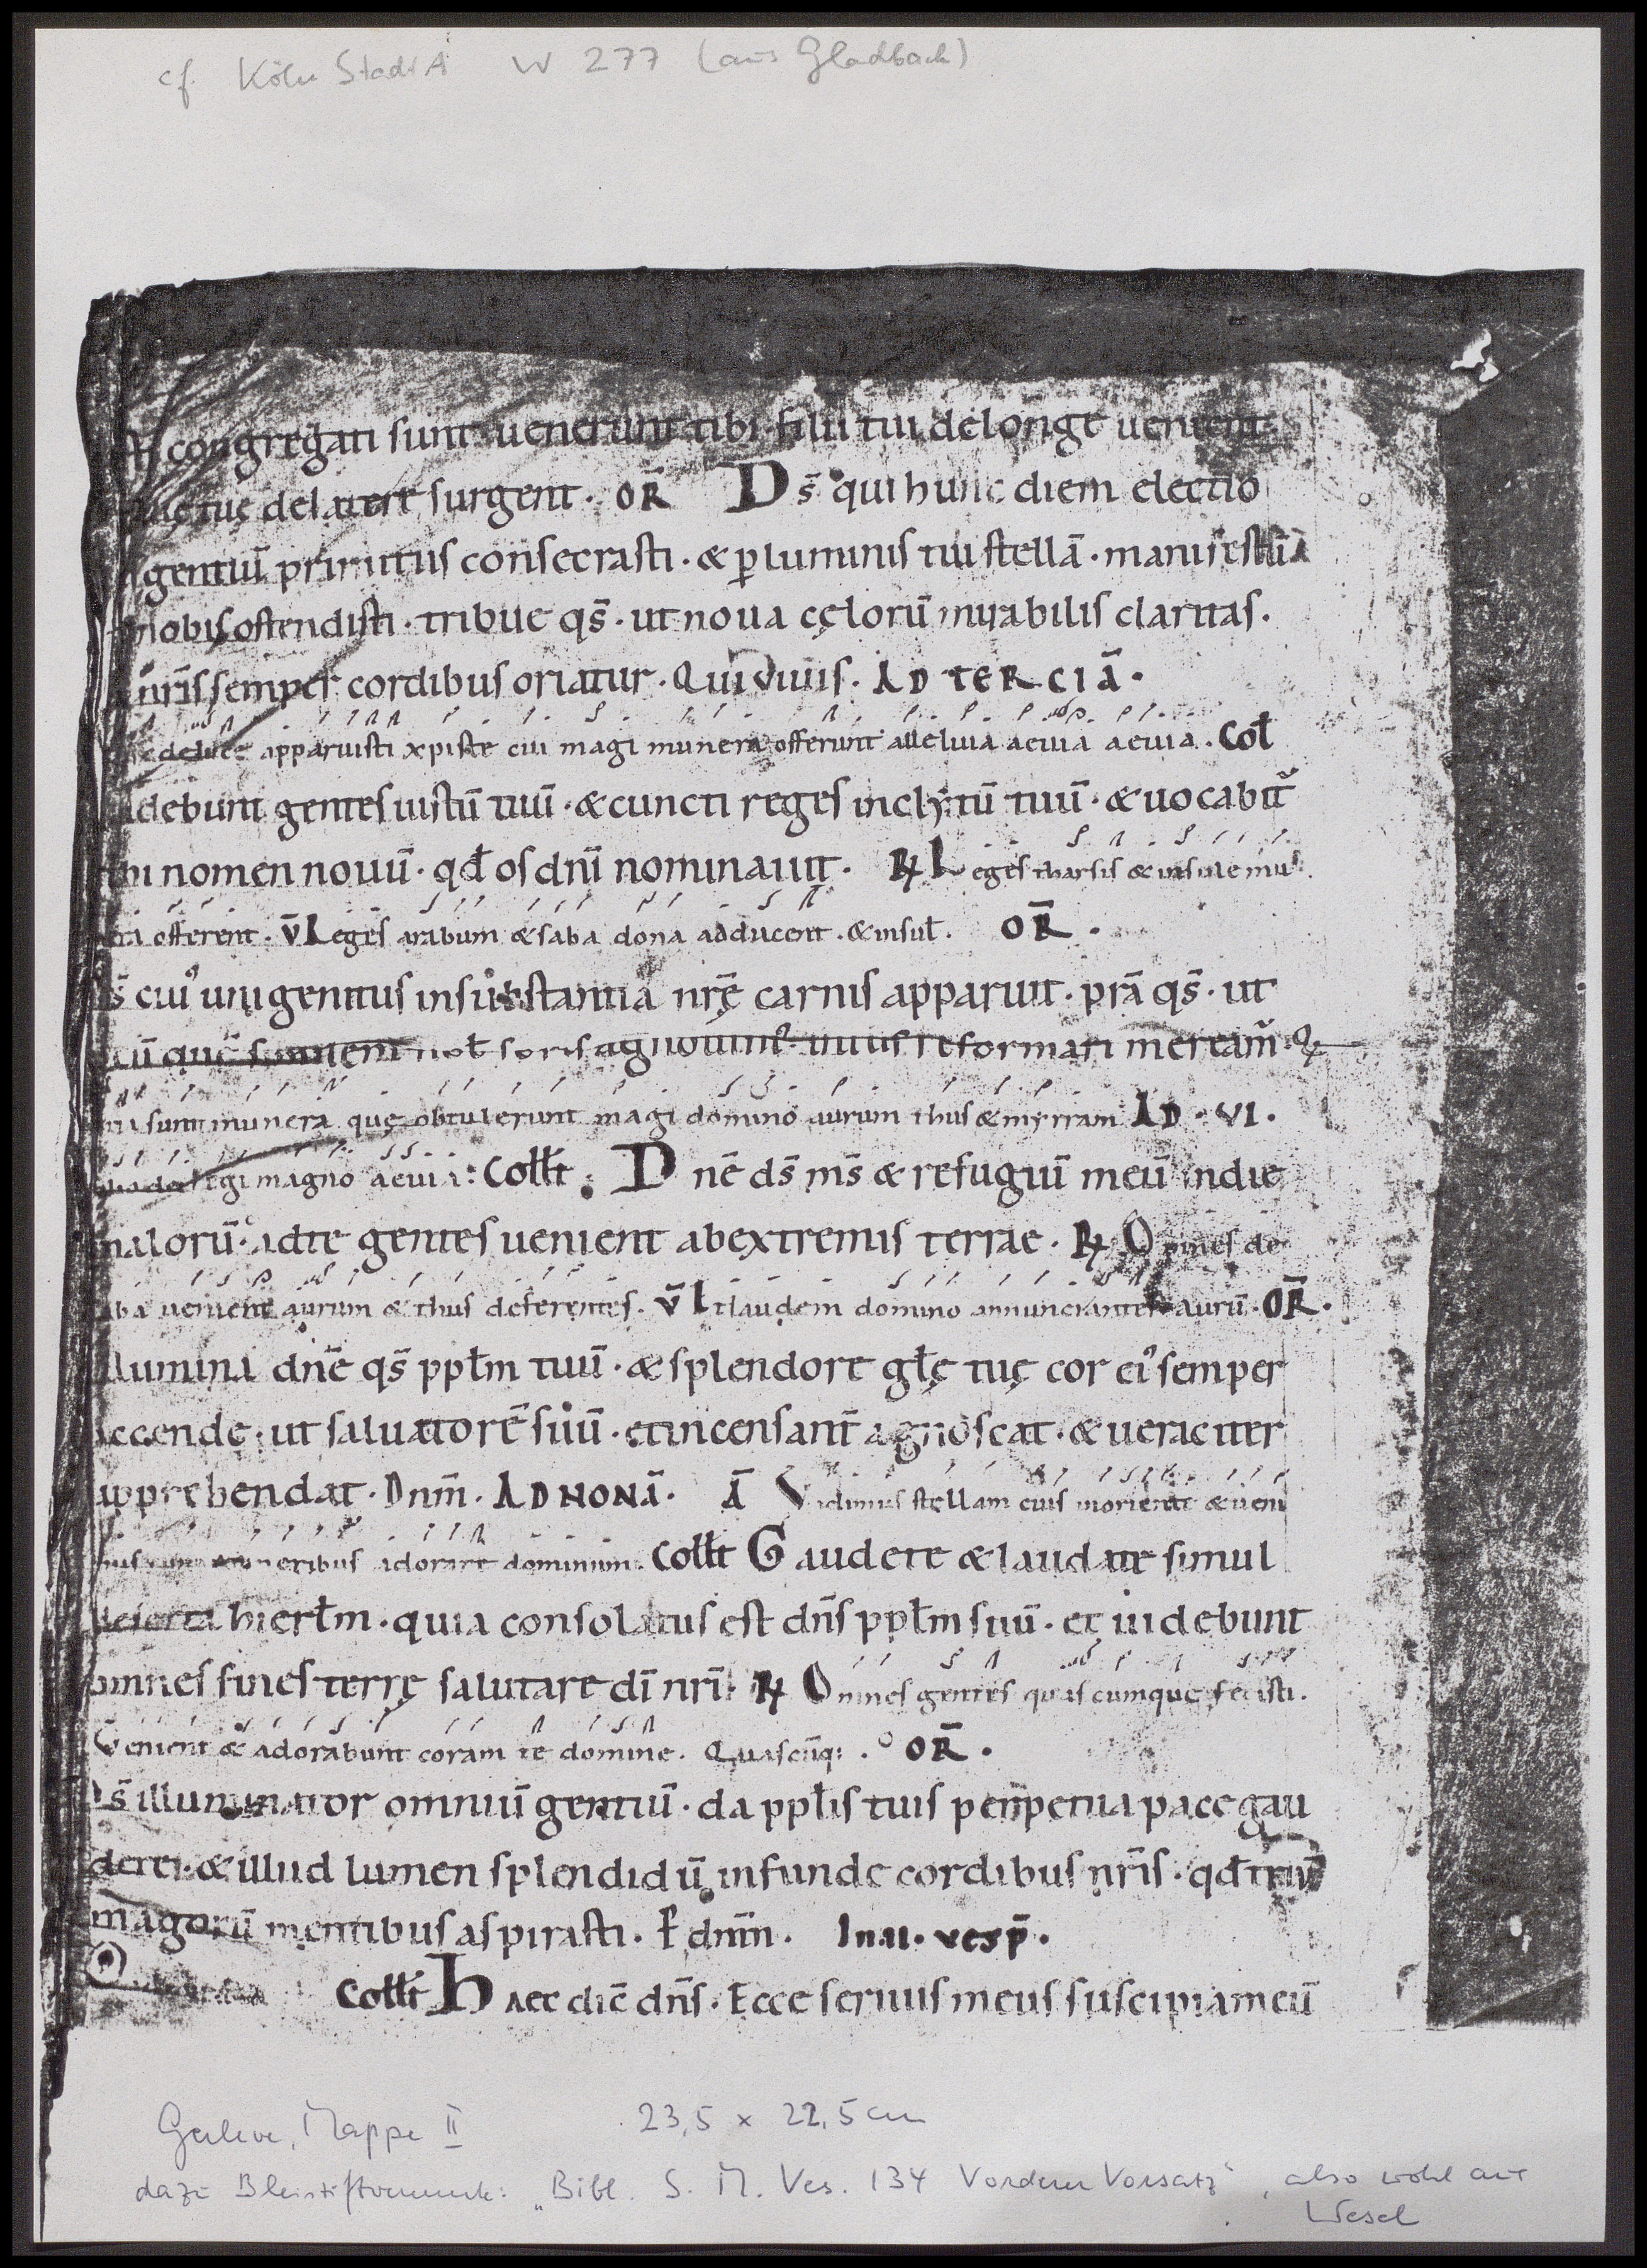 cf. Köln StadtA W 277 (aus Gladbach)
congregati sunt uenerunt tibi. filii tui delonge uenient.
tuę delatere surgent. OR̄ Ds̄ qui hunc diem electio
gentiū primitius consecrasti. & ꝑluminis tui stellā. manifestū
nobis ostendisti. tribue qs̄. ut noua cęlorū mirabilis claritas.
nr̄is semper cordibus oriatur. Qui viuis. AD TERCIĀ.
deluce apparuisti xpiste cui magi munera offerunt alleluia aeuia aeuia. Col̄
debunt gentes iustū tuū. & cuncti reges inclytū tuū. & uocabit̄
nomen nouū. qd̄ os dn̄i nominauit. R̸ Reges tharsis & insule mu
offerent. V̄ Reges arabum & saba dona adducent. & insul̄. OR̄.
s̄ cui' unigenitus insubstantia nr̄ę carnis apparuit. pr̄a qs̄. ut
quē similem nob̄ foris agnouim'. intus reformari meream̄. Q
sunt munera quę obtulerunt magi domino aurum thus & myrram AD. VI.
regi magno aeuia: Coll̄t. Dnē ds̄ ms̄ & refugiū meū indie
malorū. adte gentes uenient abextremis terrae. R̸ Omnes de
aba uenient aurum & thus deferentes. V̄ Et laudem domino annunciantes aurū. OR̄.
llumina dn̄e qs̄ ppl̄m tuū. & splendore gl̄ę tuę cor ei' semper
accende. ut saluatorē suū. et incensant̄ agnoscat. & ueraciter
apprehendat. Dnm̄. AD NONĀ. Ā Vidimus stellam eius inoriente & ueni
mus cum muneribus adorare dominum. Coll̄t Gaudete & laudate simul
deserta hierl̄m. quia consolatus est dn̄s ppl̄m suū. et uidebunt
omnes fines terrę salutare dī nr̄i. R̸ Omnes gentes quascumque fecisti.
V̄enient & adorabunt coram te domine. Quascūq;. OR̄.
Ds̄ illuminator omniū gentiū. da ppl̄is tuis perpetua pace gau
dere. & illud lumen splendidū infunde cordibus nr̄is. qd̄ triū
magorū mentibus aspirasti. P dnm̄. In .II. vesp̄.
Coll̄t Haec dic̄ dn̄s. Ecce seruus meus suscipiam eū
Gerleve, Mappe II 23,5 x 22,5 cm
dazu Bleistiftvermerk: „Bibl. S. M. Ves. 134 Vorderer Vorsatz", also wohl aus
Wesel